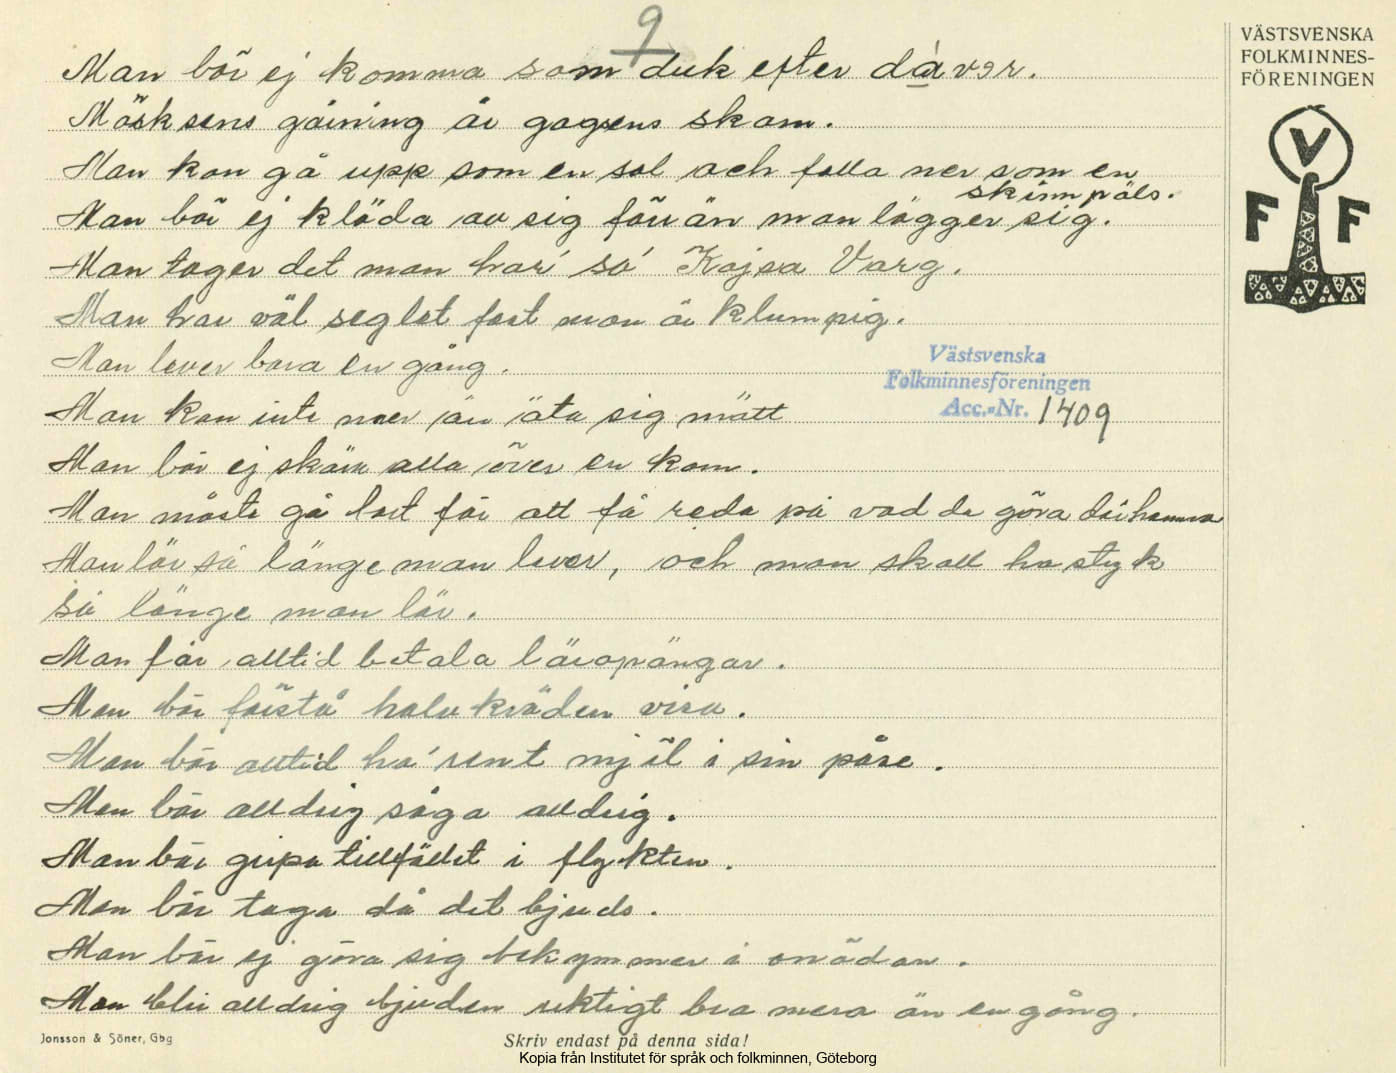 9
Man bör ej komma som duk efter dávər.
Mäsksens gärning är gagsens skam.
Man kan gå upp som en sol och falla ner som en
skinnpäls.
Man bör ej kläda av sig förr än man lägger sig.
Man tager det man har sa Kajsa Varg.
Man har väl seglat fast man är klumpig.
Man lever bara en gång.
Man kan inte mer än äta sig mätt
Man bör ej skära alla över en kam.
Man måste gå bort för att få reda på vad de göra där hemma
Man lär så länge man lever, och man skall ha styk
så länge man lär.
Man får alltid betala läropängar.
Man bör förstå halvkväden visa.
Man bör alltid ha rent mjöl i sin påse.
Man bör alldrig säga alldrig.
Man bör gripa tillfället i flykten.
Man bör taga då det bjuds.
Man bör ej göra sig bekymmer i onödan.
Man blir alldrig bjuden riktigt bra mera än en gång.
VÄSTSVENSKA
FOLKMINNES-
FÖRENINGEN
V
F F
Västsvenska
Folkminnesföreningen
Acc.-Nr. 1409
Jonsson & Söner, Gbg
Skriv endast på denna sida!
Kopia från Institutet för språk och folkminnen, Göteborg